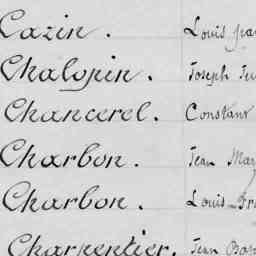 Cazin. Louis
Chalopin. Joseph
Chancerel. Constant
Charbon. Jean
Charbon. Louis
Charpentier. Jean